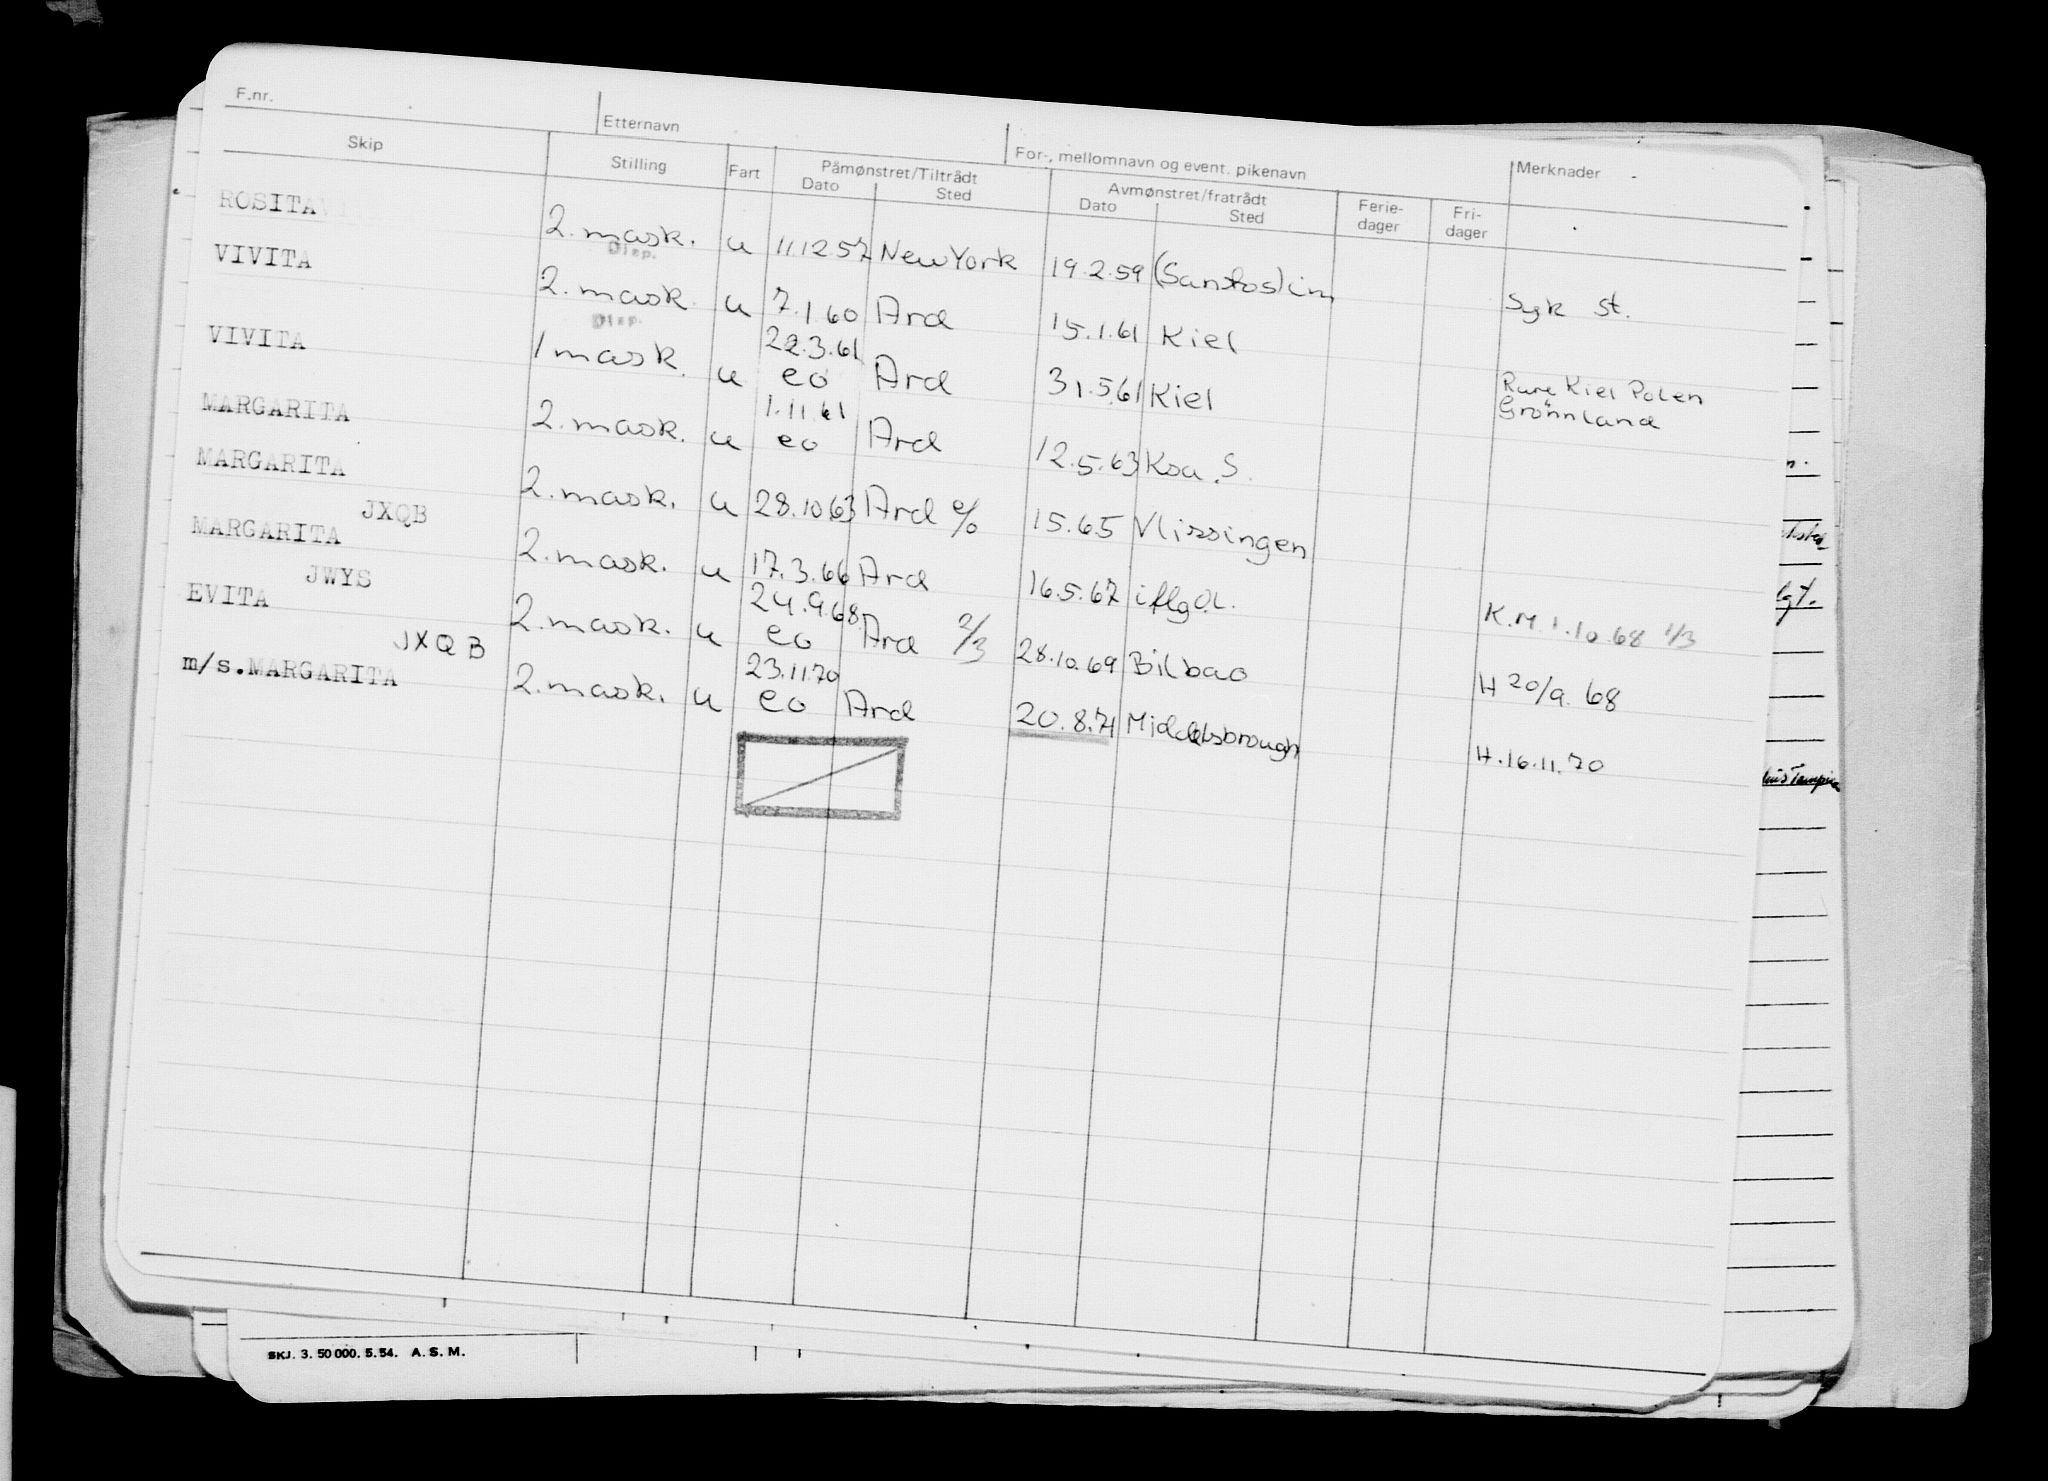 F.nr.
Etternavn
For-, mellomnavn og event. pikenavn
Skip Stilling Fart Påmønstret/Tiltrådt Avmønstret/fratrådt Ferie- Fri- Merknader
Dato Sted Dato Sted dager dager
ROSITA 2. mask. u 11.12.57 New York 19.2.59 (Santos) im Syk st.
Disp.
VIVITA 2. mask. u 7.1.60 Ard 15.1.61 Kiel
Disp.
22.3.61
VIVITA 1 mask. u eo Ard 31.5.61 Kiel Rure Kiel Polen
Grönnland
1.11.61
MARGARITA 2. mask. u eo Ard 12.5.63 Koa. S.
MARGARITA 2. mask. u 28.10.63 Ard e/o 15.6.5 Vlissingen
JXQB
MARGARITA 2. mask. u 17.3.66 Ard 16.5.67 iflg O.L. K.M. 1.10.68 1/3
JWYS 24.9.68
EVITA 2. mask. u eo Ard 2/3 28.10.69 Bilbao H 20/9.68
JXQB 23.11.70
m/s. MARGARITA 2. mask. u eo Ard 20.8.71 Middelsbrough H.16.11.70
SKJ. 3. 50 000. 5. 54. A. S. M.